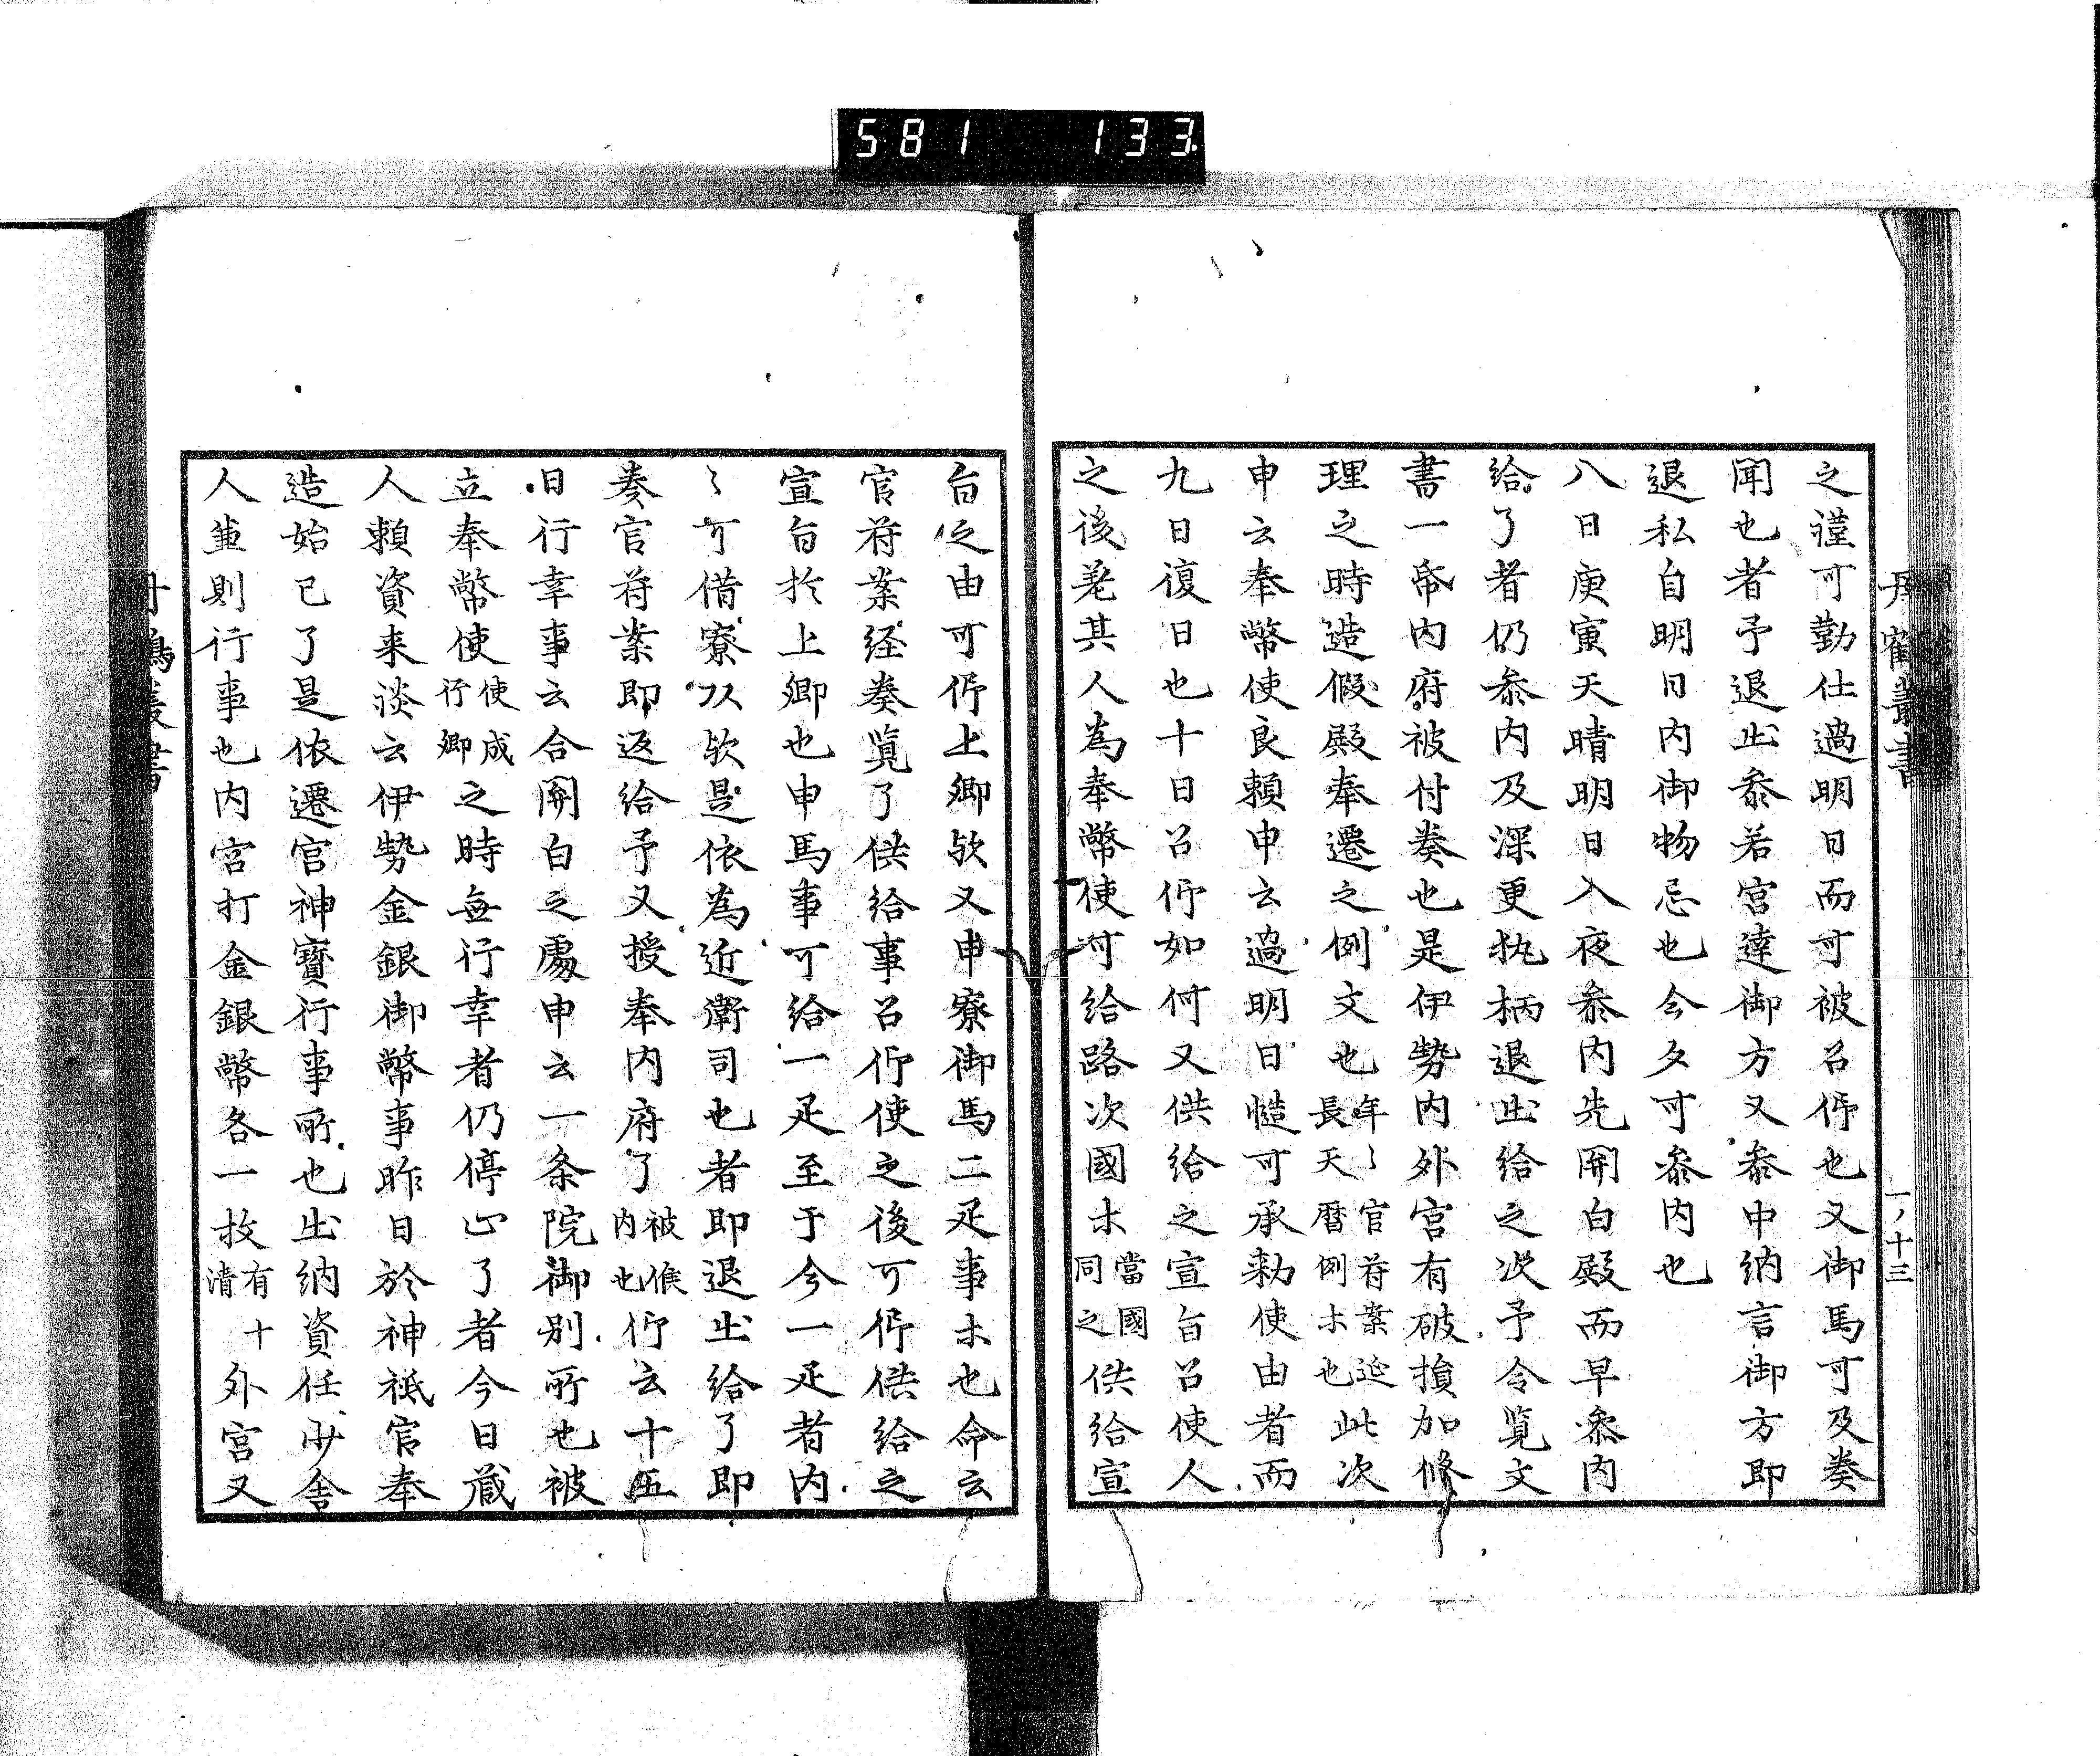 581 133
之謹可勤仕過明日而可被召仰也又御馬可及奏
聞也者予退出参若宮達御方又参中納言御方即
退私自明日内御物忌也今夕可参内也
八日庚寅天晴明日入夜参内先関白殿而早参内
給了者仍参内及深更執柄退出給之次予令覧文
書一帋内府被付奏也是伊勢内外宮有破損加修
理之時造假殿奉遷之例文也年〻官符案延長天暦例木也此次
申云奉幣使良頼申云過明日愷可承勅使由者而
九日復日也十日召仰如何又供給之宣旨召使人
之後差其人為奉幣使可給路次國木當國同之供給宣
旨之由可仰上卿欤又申寮御馬二疋事木也命云
官符案経奏覧了供給事召仰使之後可仰供給之
宣旨於上卿也申馬事可給一疋至于今一疋者内
〻可借寮以欤是依為近衛司也者即退出給了即
奏官符案即返給予又授奉内府了被候内也仰云十五
日行幸事云合関白之處申云一条院御別所也被
立奉幣使使成行卿之時無行幸者仍停止了者今日蔵
人頼資来談云伊勢金銀御幣事昨日於神祇官奉
造始已了是依遷宮神寳行事所也出納資任少舎
人並則行事也内宮打金銀幣各一枚有清十外宮又
丹鶴叢書
一ノ十三